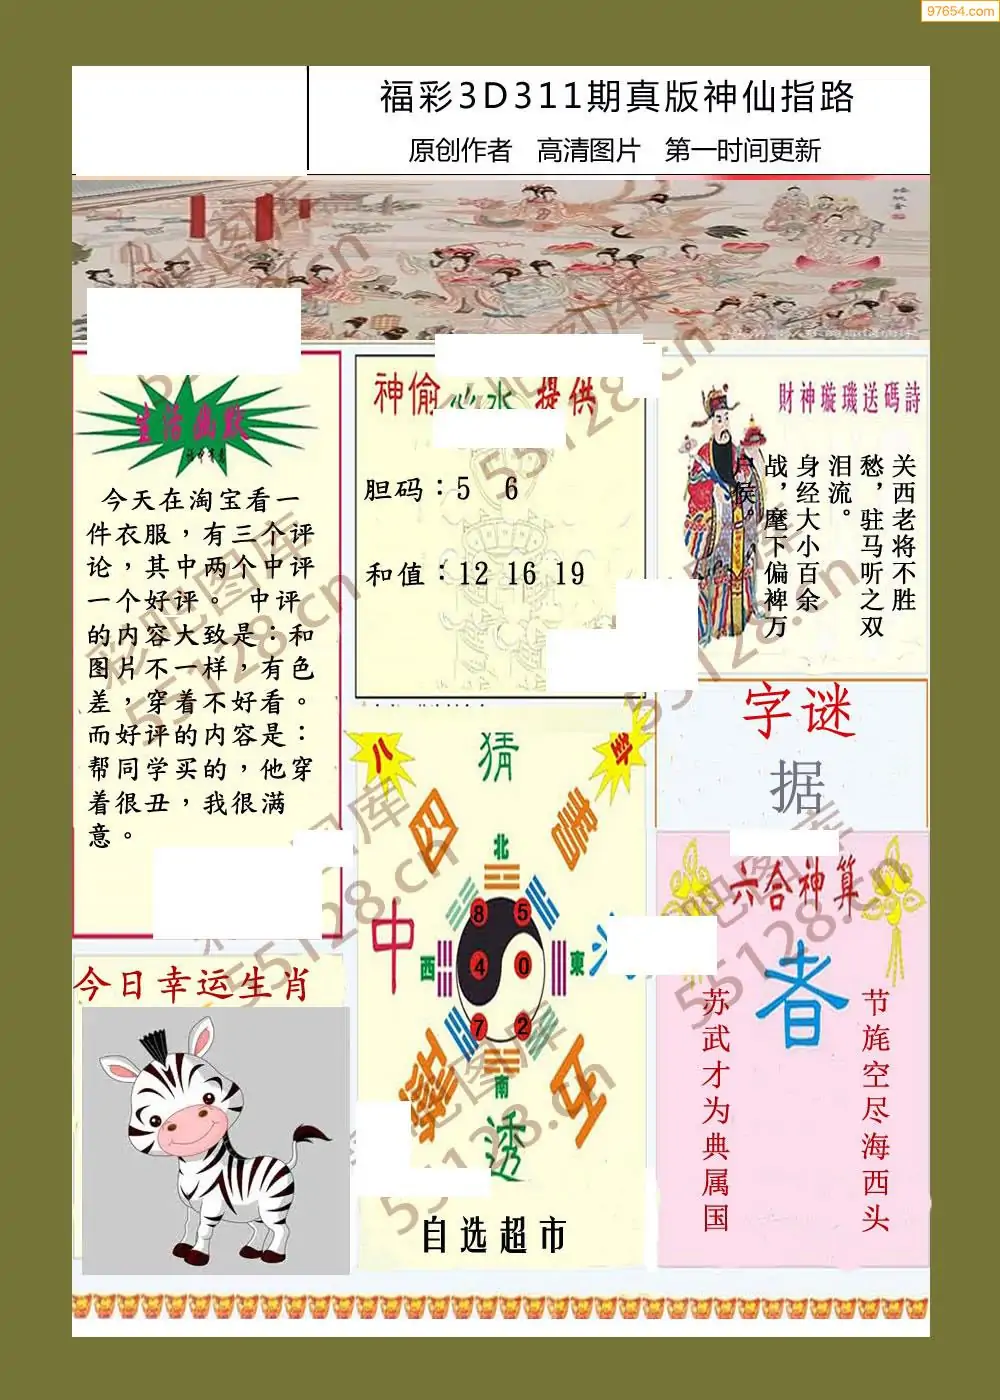 97654.com
福彩3D311期真版神仙指路
原创作者 高清图片 第一时间更新
生活幽默
今天在淘宝看一
件衣服，有三个评
论，其中两个中评
一个好评。 中评
的内容大致是：和
图片不一样，有色
差，穿着不好看。
而好评的内容是：
帮同学买的，他穿
着很丑，我很满
意。
神偷心水提供
胆码：5 6
和值：12 16 19
財神璇璣送碼詩
关西老将不胜
愁，驻马听之双
泪流。
身经大小百余
战，麾下偏裨万
户侯。
字谜
据
今日幸运生肖
八
卦
猜
四
中
透
北
西
東
南
8
5
4
0
7
2
自选超市
六合神算
者
节旄空尽海西头
苏武才为典属国
彩吧图库
55128.cn